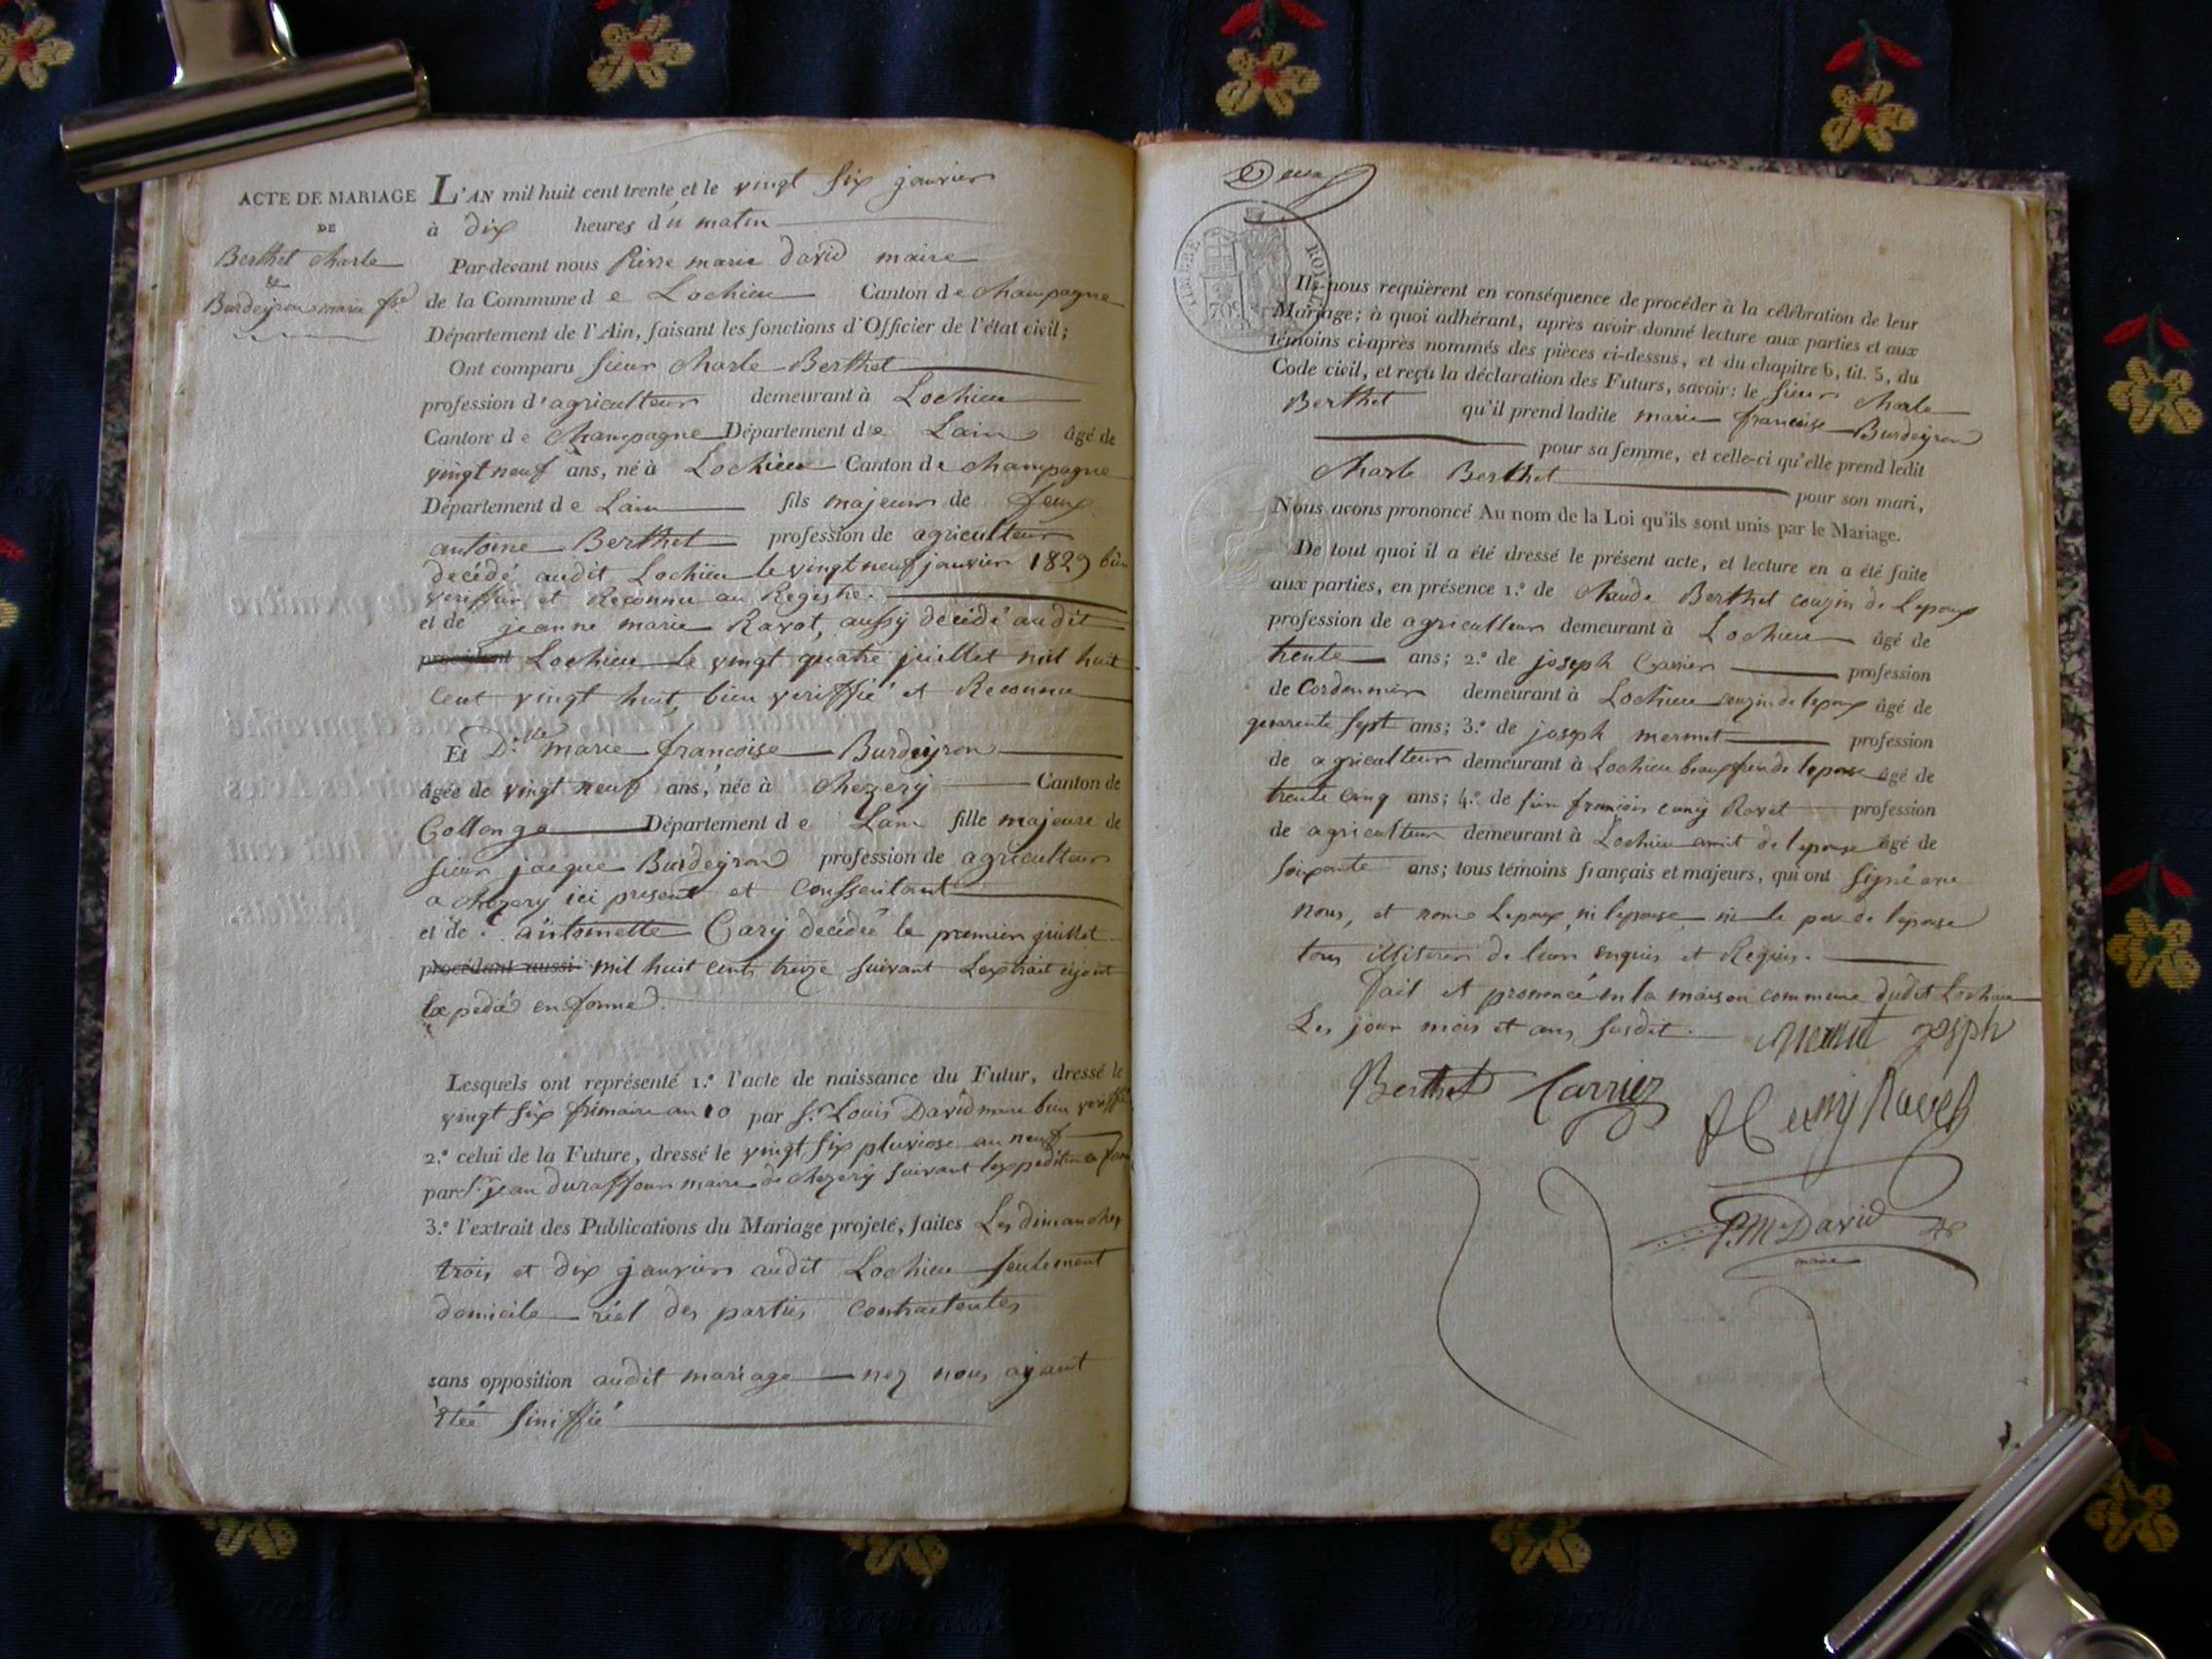 ACTE DE MARIAGE
DE
Berthet charle
&
Burdeyron marie fse
L'AN mil huit cent trente et le vingt six janvier
à dix heures du matin
Par-devant nous Pierre marie david maire
de la Commune de Lochieu Canton de champagne
Département de l'Ain, faisant les fonctions d'Officier de l'état civil;
Ont comparu sieur charle Berthet
profession d'agriculteur demeurant à Lochieu
Canton de Champagne Département de Lain âgé de
vingt neuf ans, né à Lochieu Canton de champagne
Département de Lain fils majeur de feux
antoine Berthet profession de agriculteur
décédé audit Lochieu le vingt neuf janvier 1829 bien
veriffier et Reconnu au Registre.
et de jeanne marie Ravot, aussy décédé audit
procédant Lochieu le vingt quatre juillet mil huit
cent vingt huit, bien veriffié et Reconnu
Et D.lle marie francoise Burdeyron
âgée de vingt neuf ans, née à chezery Canton de
Collonge Département de Lain fille majeure de
sieur jacque Burdeyron profession de agriculteur
a chezery ici present et conssentant
et de antoinette Cary décédé le premier juillet
procédant aussi mil huit cent treize suivant Lextrait cijoint
Lexpedié en forme.
Lesquels ont représenté 1.º l'acte de naissance du Futur, dressé le
vingt six frimaire an 10 par s.r Louis David maire bien veriffié
2.º celui de la Future, dressé le vingt six pluviose an neuf
par s.r jean duraffour maire de chezery suivant lexpedition en forme
3.º l'extrait des Publications du Mariage projeté, faites Les dimanches
trois et dix janvier audit Lochieu seulement
domicile réel des parties contractentes
sans opposition audit mariage nez nous ayant
étée siniffié
Deux
TIMBRE ROYAL
70c
Ils nous requièrent en conséquence de procéder à la célébration de leur
Mariage; à quoi adhérant, après avoir donné lecture aux parties et aux
témoins ci-après nommés des pièces ci-dessus, et du chapitre 6, tit. 5, du
Code civil, et reçu la déclaration des Futurs, savoir: le sieur charle
Berthet qu'il prend ladite marie francoise Burdeyron
pour sa femme, et celle-ci qu'elle prend ledit
Charle Berthet pour son mari,
Nous avons prononcé Au nom de la Loi qu'ils sont unis par le Mariage.
De tout quoi il a été dressé le présent acte, et lecture en a été faite
aux parties, en présence 1.º de Claude Berthet couzin de Lepoux
profession de agriculteur demeurant à Lochieu âgé de
trente ans; 2.º de joseph Carrier profession
de Cordonnier demeurant à Lochieu couzin de lepoux âgé de
quarente sept ans; 3.º de joseph mermet profession
de agriculteur demeurant à Lochieu beauxfrere de lepouse âgé de
trente cinq ans; 4.º de francois Ravet profession
de agriculteur demeurant à Lochieu amit de lepouse âgé de
soixante ans; tous témoins français et majeurs, qui ont signé avec
nous, et nom Lepoux, ni lepouse, ni le pere de lepouse
tous illiterer de leur enquis et Requis.
Fait et prononcé en la maison commune dudit Lochieu
Les jour mois et ans susdit. mermet joseph
Berthet Carrier Ravet
P.M. David
maire